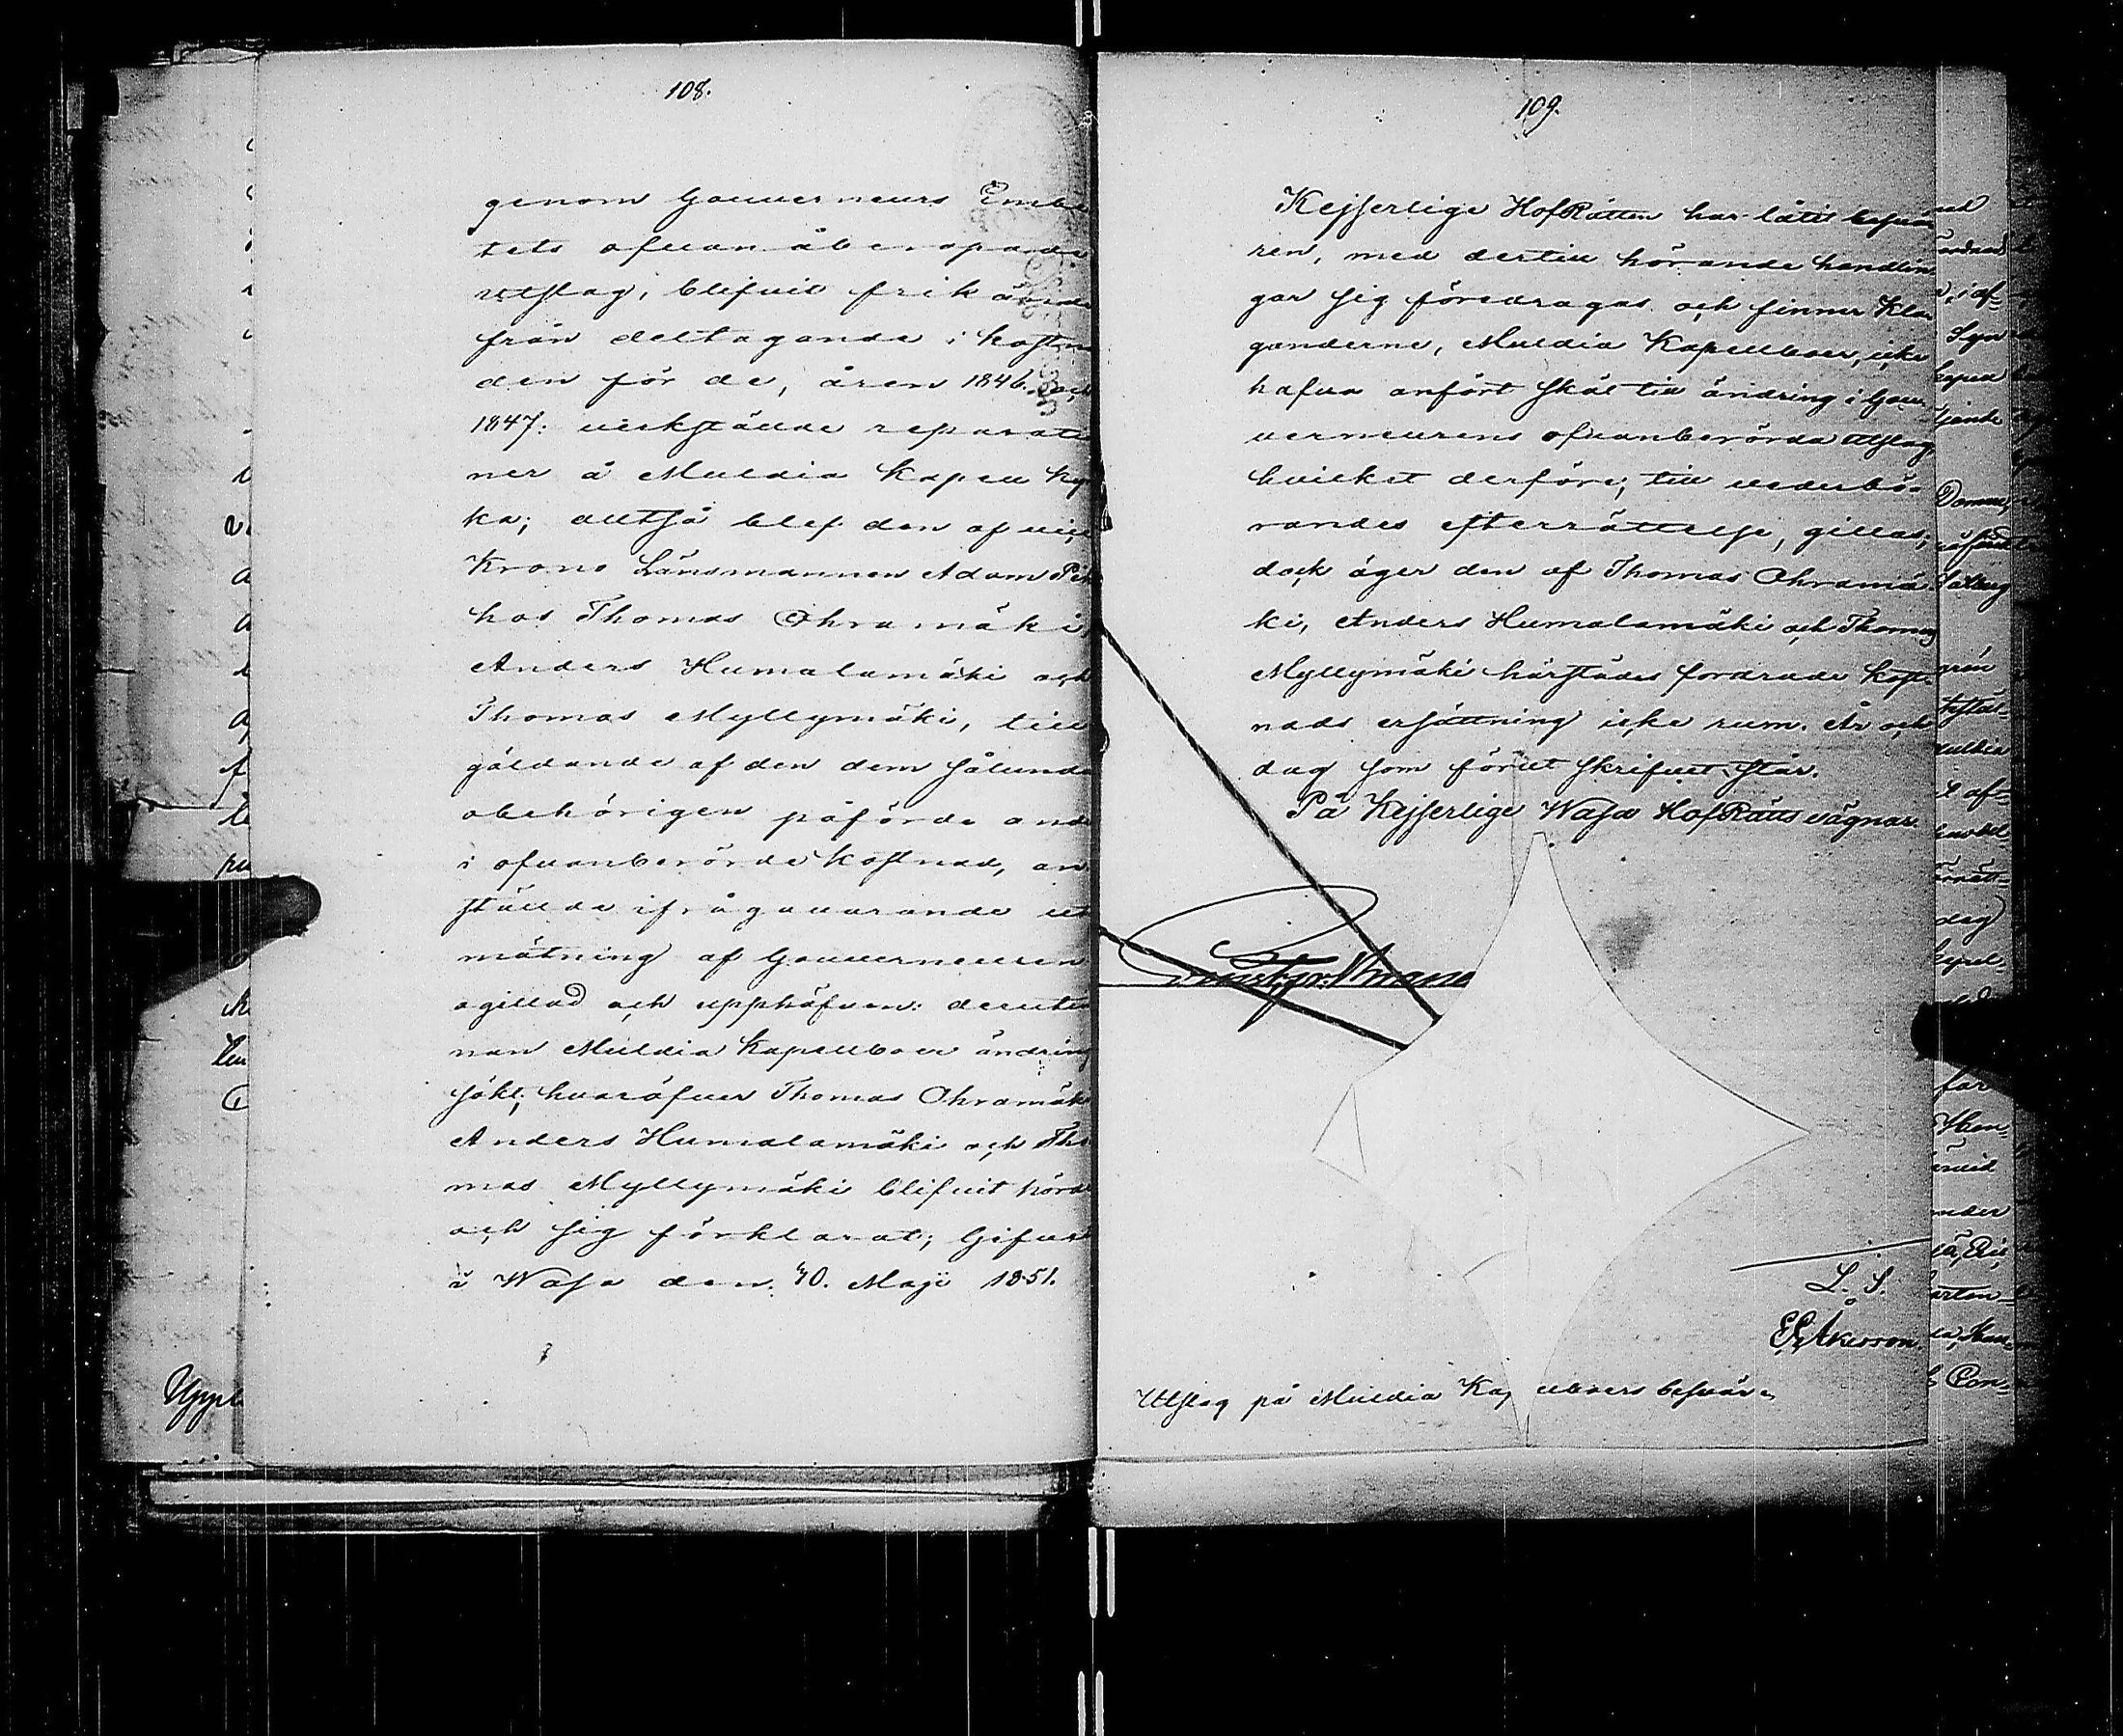 108.
genom Gouverneurs Embe
tets ofvan åberopade
utslag, blifvit frikände
från deltagande i kostna
den för de, åren 1846. och
1847. verkstälde reparatio
ner å Muldia Kapell kyr
ka; alltså blef den af vice
Krono Länsmannen Adam
hos Thomas Ohramäki,
Anders Humalamäki och
Thomas Myllymäki, till
gäldande af den dem sålunda
obehörigen påförde andel
i ofvanberörde kostnad, an
stälde ifrågavarande ut
mätning af Gouverneuren
ogillad och upphäfven: derutin
nan Muldia Kapellboer ändring
sökt; hvaröfver Thomas Ohramäki
Anders Humalamäki och Tho
mas Myllymäki blifvit hörde
och sig förklarat; Gifvet
i Wasa den 10. Maji 1851.
109.
Kejserlige HofRätten har låtit besvä
ren, med dertill hörande handlin
gar sig föredragas och finner Kla
ganderne, Muldia Kapellboer, icke
hafva anfört skäl till ändring i Gou
verneurens ofvanberörda utslag,
hvilket derföre, till vederbö-
randes efterrättelse, gillas;
dock äger den af Thomas Ohramä
ki, Anders Humalamäki och Thomas
Myllymäki härstädes fordrade kost-
nads ersättning icke rum. År och
dag som förut skrifvet står.
På Kejserlige Wasa HofRätts vägnar.
L. S.
Åkerson.
Utslag på Muldia Kapellboers besvär.